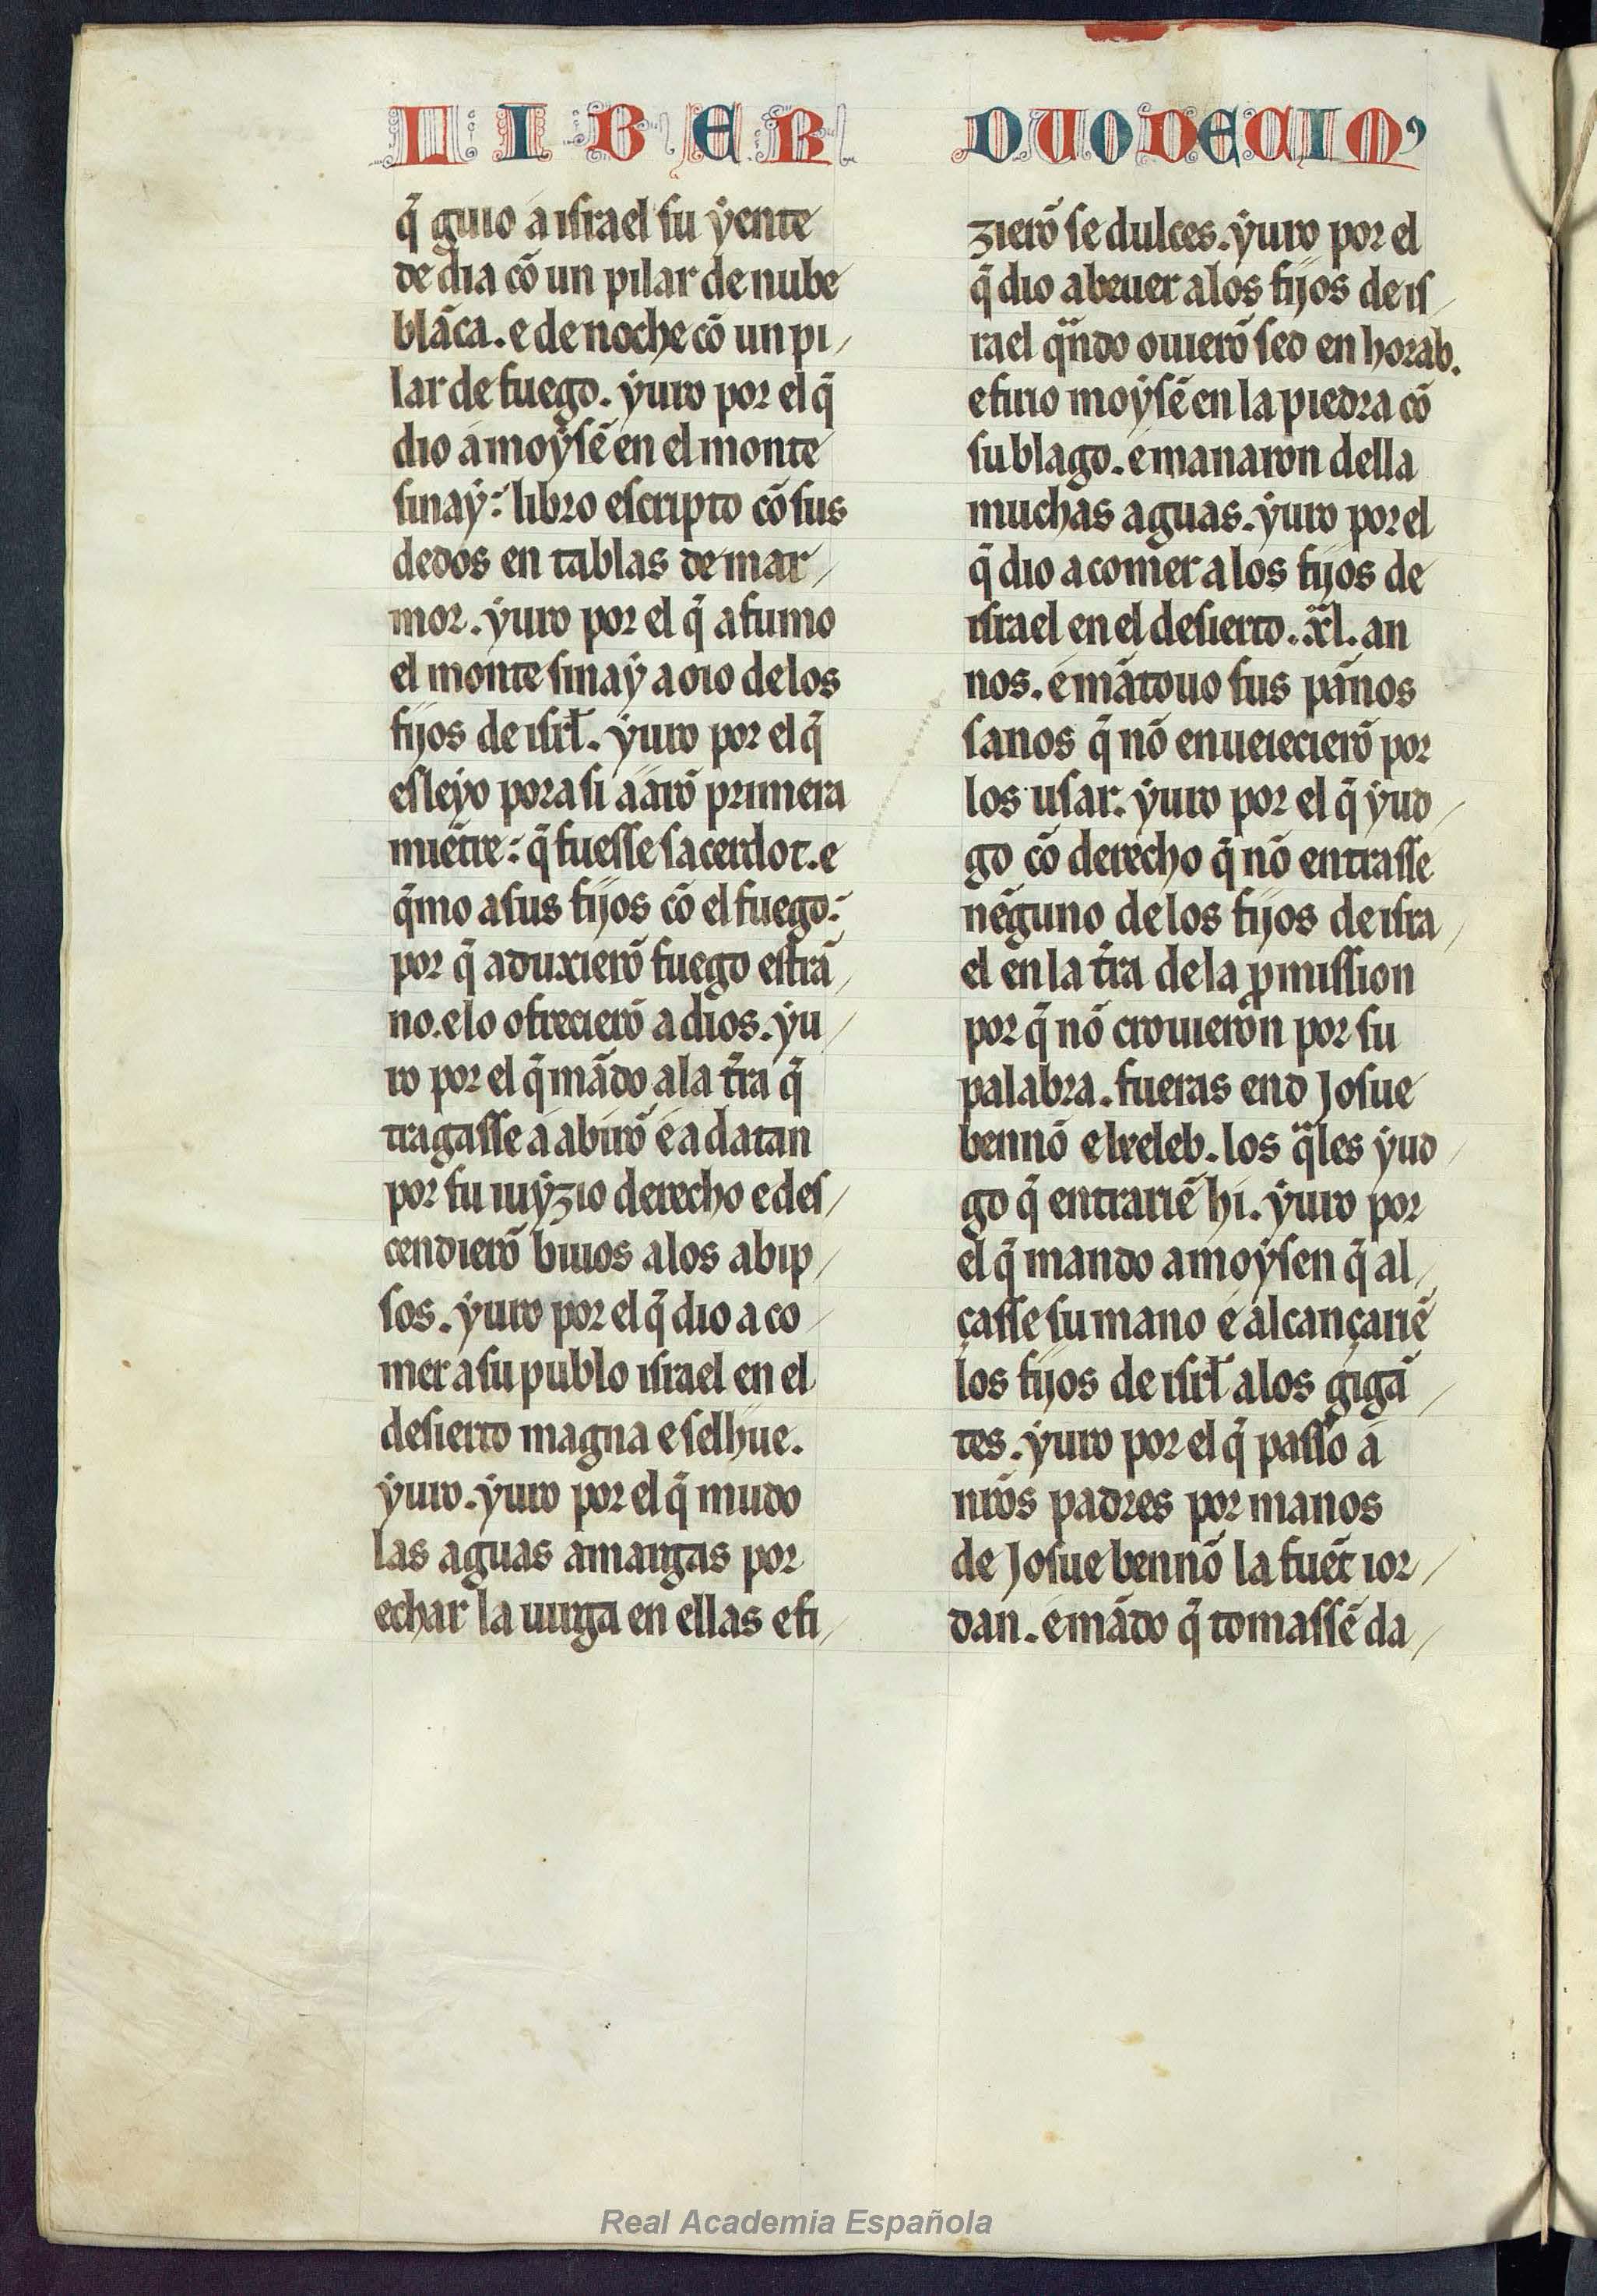 LIBER DUODECIMꝰ
q̄ guio a israel su ẏente
de dia cō un pilar de nube
blāca. e de noche cō un pi/
lar de fuego. ẏuro por el q̄
dio a moẏsē en el monte
sinaẏ: libro escripto cō sus
dedos en tablas de mar/
mor. ẏuro por el q̄ afumo
el monte sinaẏ a oio delos
fijos de isrł. ẏuro por el q̄
esleẏo pora si a arō primera
miētre: q̄ fuesse sacerdot. e
q̄mo asus fijos cō el fuego:
por q̄ aduxierō fuego estrā/
no. e lo ofrecierō a dios. ẏu/
ro por el q̄ mādo ala t̄ra q̄
tragasse a abirō e a datan
por su iuẏzio derecho e des/
cendierō biuos alos abip/
sos. ẏuro por el q̄ dio a co/
mer a su publo israel en el
desierto magna e selhue.
ẏuro. ẏuro por el q̄ mudo
las aguas amargas por
echar la uirga en ellas e fi/
zierō se dulces. ẏuro por el
q̄ dio abeuer alos fijos de is/
rael q̄ndo ouierō sed en horab.
e firio moẏsē en la piedra cō
su blago. e manaron della
muchas aguas. ẏuro por el
q̄ dio a comer alos fijos de
israel en el desierto. xl. an
nos. e mātouo sus pānos
sanos q̄ nō enueiecierō por
los usar. ẏuro por el q̄ ẏud/
go cō derecho q̄ nō entrasse
nēguno delos fijos de isra/
el en la t̄ra de la ꝓmission
por q̄ nō crouieron por su
palabra. fueras end Josue
bennō e keleb. los q̄les ẏud/
go q̄ entrariē hi. ẏuro por
el q̄ mando a moẏsen q̄ al/
çasse su mano e alcançariē
los fijos de isrł alos gigā/
tes. ẏuro por el q̄ passo a
nr̄os padres por manos
de Josue bennō la fuēt ior/
dan. e mādo q̄ tomassē da/
Real Academia Española